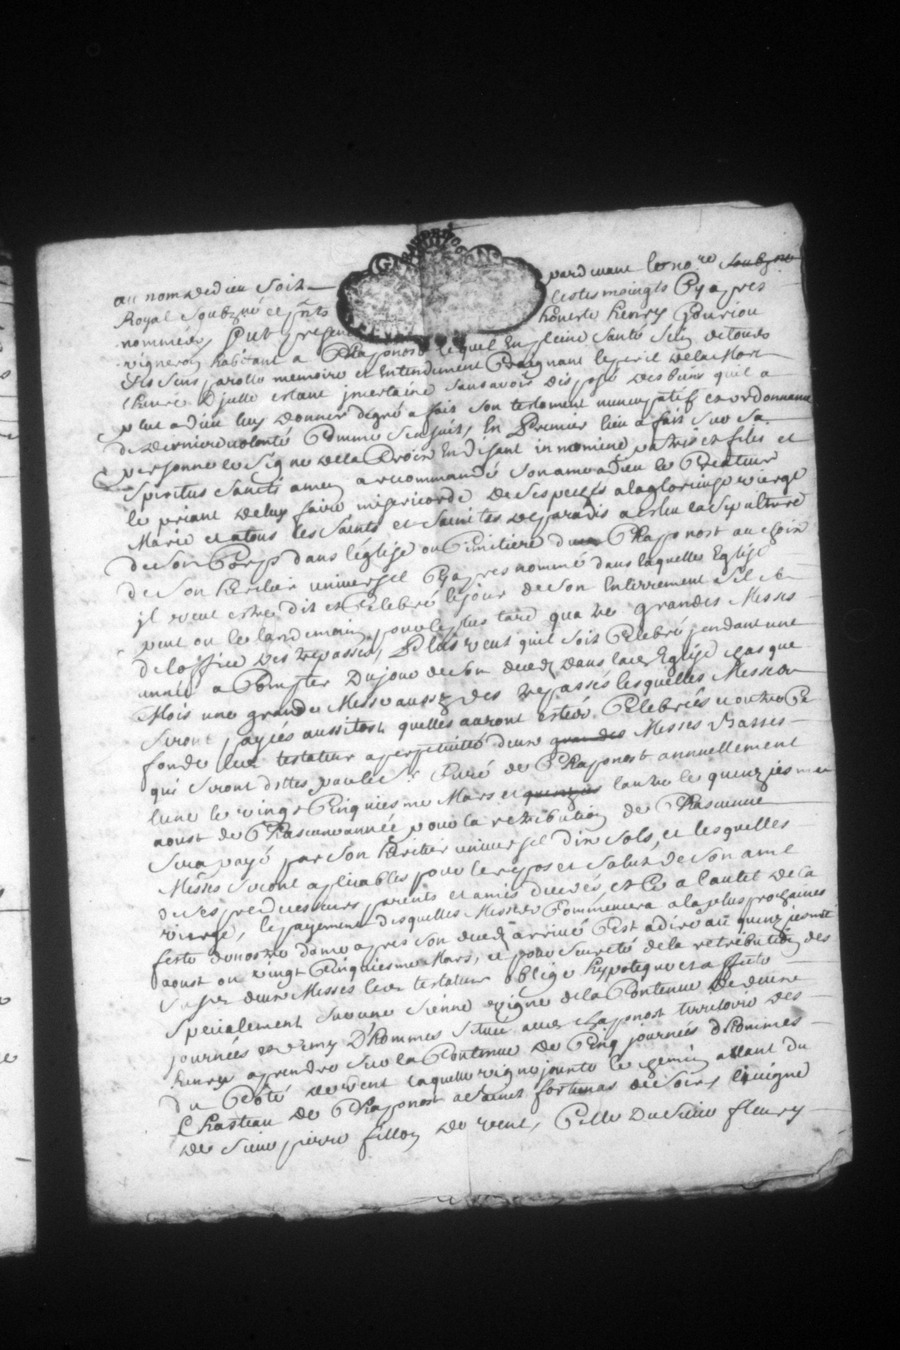 au nom de dieu soit pardevant le no.re soubz.né
Royal soubz.né et p.nts les tesmoingts Cy apres
nommés, fut present honeste henry Gouriou
vigneron habitant a Chapponost lequel En pleine santé sein de tous
ses sens parolle memoire et Entendement Craignant le peril de la Mort
l'heure D'jcelle estant jncertaine sans avoir disposé des biens qu'il a
plut a dieu luy donner de gré a fait son testament nuncupatif et ordonnance
de derniere volonté Comme s'ensuit, En Premier lieu a fait sur sa
personne le signe de la Croix En disant in nomine patris et filis et
Spiritus Sancti amen a recommandé son ame a dieu le Createur
le priant de luy faire misericorde de ses pechés a la glorieuse vierge
Marie et a tous les Saints et Saintes de paradis a esleu la sepulture
de son Corps dans l'église ou Cimitiere dud Chapponost au choix
de son heritier universel Cy apres nommé dans laquelle Eglise
jl veut estre dit et Celebré le jour de son Enterrement si se
peut ou le landemain pour le plus tard quatre grandes Messes
de l'office des trepassés, Plus veut qu'il soit Celebré pendant une
année a Compter du jour de son deces dans lad. Eglise chasque
Mois une grande Messe aussy des trepassés lesquelles Messes
seront payées aussitost quelles auront estées Celebrées et outre Ce
fonde led. testateur a perpetuité deux grandes Messes Basses
qui seront dittes par le S.r Curé de Chapponost annuellement
l'une le vingt Cinquiesme Mars et l'autre le quinziesme
aoust de Chascune année pour la retribution de Chascune
sera payé par son heritier universel dix sols, et lesquelles
Messes seront aplicables pour le repos et salut de son ame
de ses predecesseurs parents et amis decedés, et Ce a l'autel de la
vierge, le payement desquelles Messes Commencera a la plus prochaines
feste de nostre dame apres son deces arrivé C'est a dire au quinziesme
aoust ou vingt Cinquiesme Mars, et pour seureté de la retribution des
susd. deux Messes led. testateur oblige hypoteque et affecte
specialement sur une sienne vigne de la Contenue de deux
journées et demy D'hommes située aud. Chapponost territoire des
a prendre sur la Contenue de Cinq journées d'hommes
du Côté de vent laquelle vigne jointe le chemin allant du
Chasteau de Chapponost a Saint fortunas de soir, la vigne
de sieur pierre fillon de vent, Celle du sieur fleury